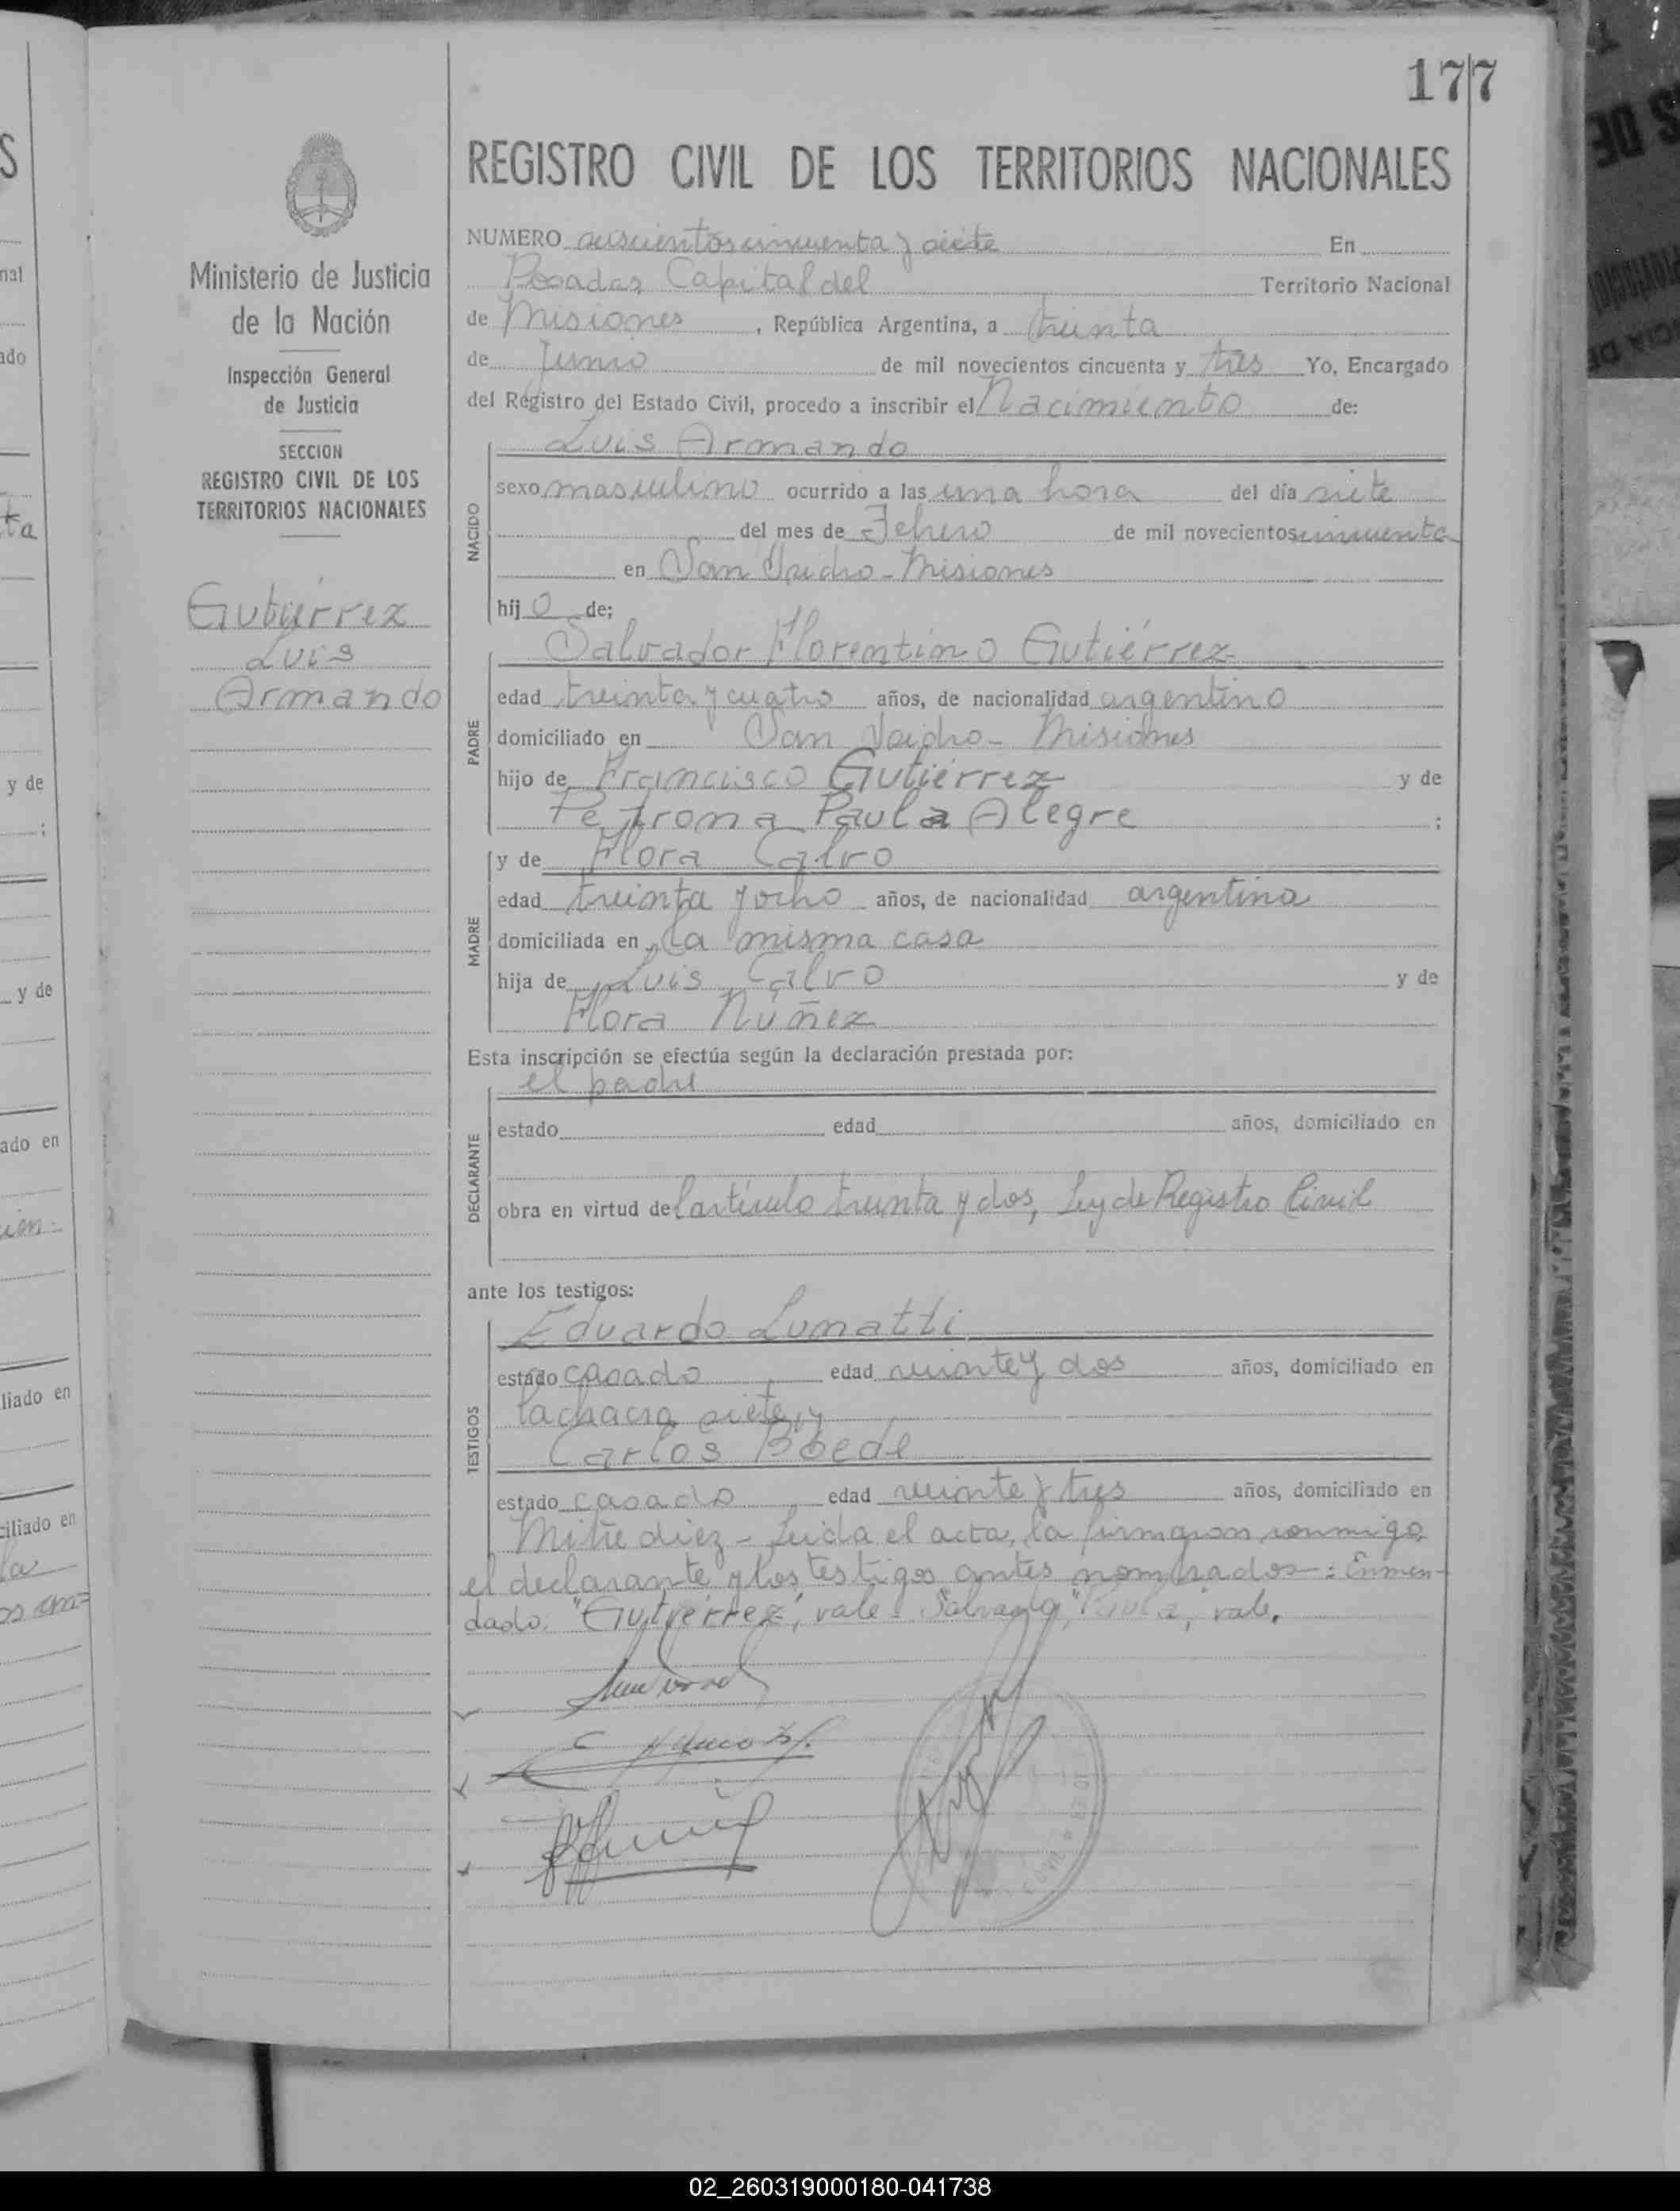 177
REGISTRO CIVIL DE LOS TERRITORIOS NACIONALES
Ministerio de Justicia
de la Nación
Inspección General
de Justicia
SECCION
REGISTRO CIVIL DE LOS
TERRITORIOS NACIONALES
Gutiérrez
Luis
Armando
NUMERO seiscientos cincuenta y siete En
Posadas Capital del Territorio Nacional
de Misiones, República Argentina, a treinta
de Junio de mil novecientos cincuenta y tres Yo, Encargado
del Registro del Estado Civil, procedo a inscribir el Nacimiento de:
NACIDO
Luis Armando
sexo masculino ocurrido a las una hora del día siete
del mes de Febrero de mil novecientos cincuenta
en San Isidro - Misiones
hijo de;
PADRE
Salvador Florentino Gutiérrez
edad treinta y cuatro años, de nacionalidad argentino
domiciliado en San Isidro - Misiones
hijo de Francisco Gutiérrez y de
Petrona Paula Alegre ;
MADRE
y de Flora Calvo
edad treinta y ocho años, de nacionalidad argentina
domiciliada en la misma casa
hija de Luis Calvo y de
Flora Núñez
Esta inscripción se efectúa según la declaración prestada por:
DECLARANTE
el padre
estado edad años, domiciliado en
obra en virtud del artículo treinta y dos, Ley de Registro Civil
ante los testigos:
TESTIGOS
Eduardo Lunatti
estado casado edad veinte y dos años, domiciliado en
la chacra siete, y
Carlos Boede
estado casado edad veinte y tres años, domiciliado en
Mitre diez - Leída el acta, la firmaron conmigo,
el declarante y los testigos antes nombrados: Enmen-
dado: "Gutiérrez", vale. "Paula", vale.
y de
y de
ado en
liado en
ciliado en
02_260319000180-041738